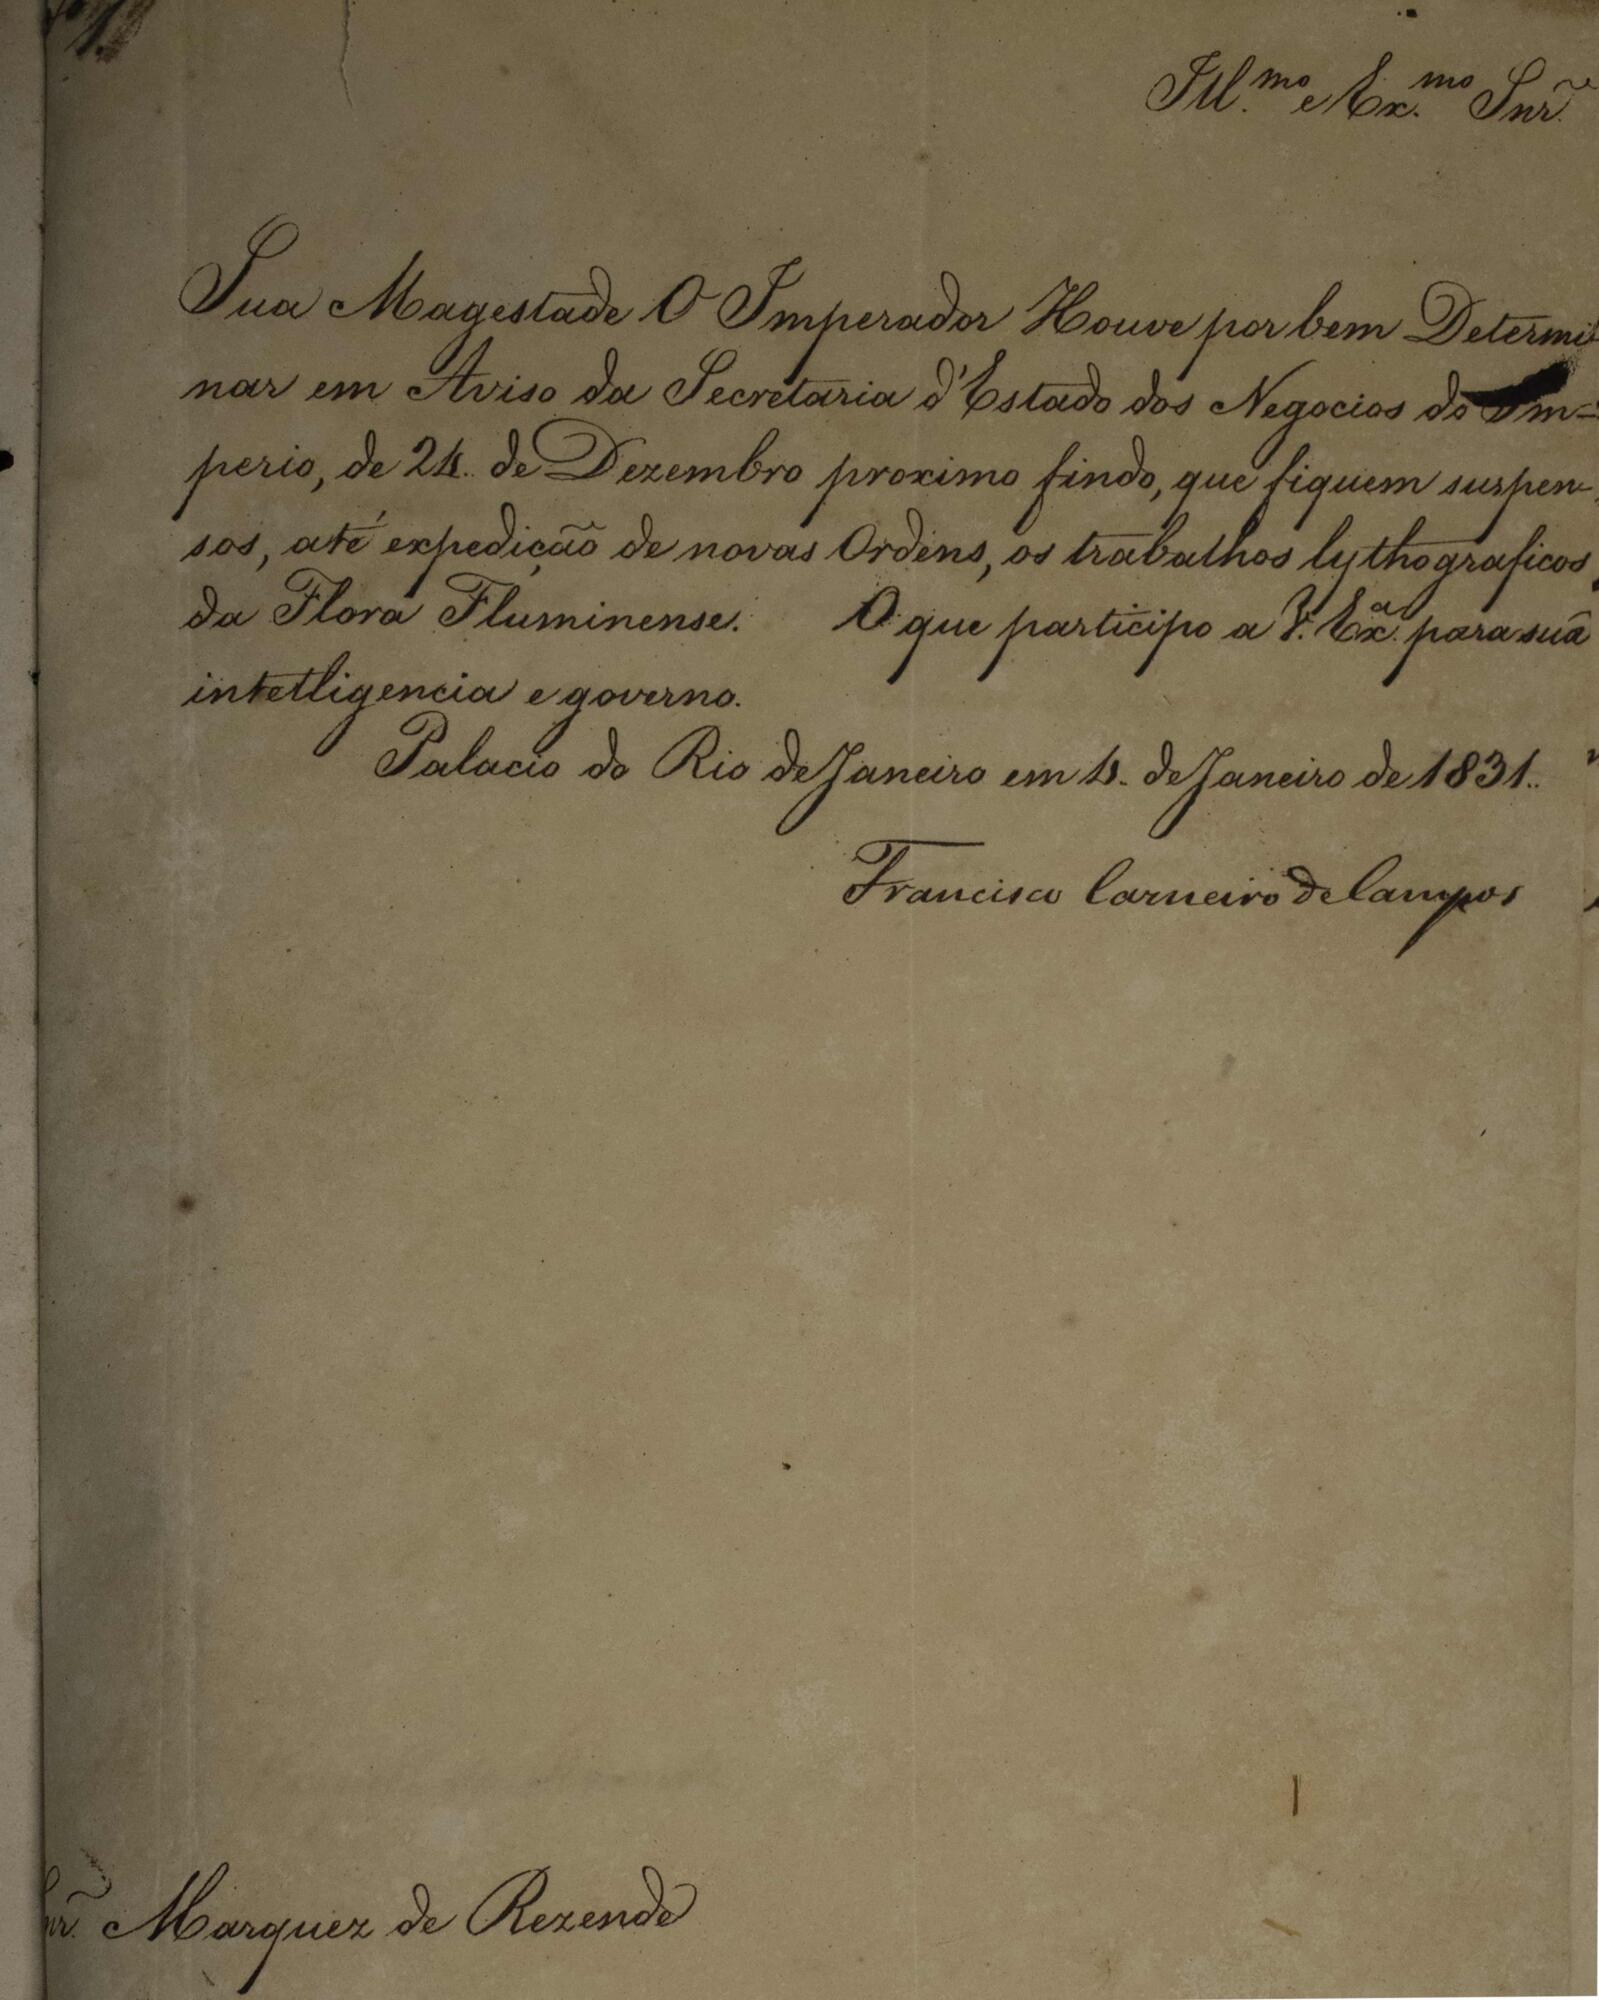 Ill.mo e Ex.mo Snr.
Sua Magestade O Imperador Houve por bem Determi
nar em Aviso da Secretaria d'Estado dos Negocios do Im=
perio, de 24. de Dezembro proximo findo, que fiquem suspen-
sos, até expedição de novas Ordens, os trabalhos lythograficos
da Flora Fluminense. O que participo a V. Ex.a para sua
intelligencia e governo.
Palacio do Rio de Janeiro em 4. de Janeiro de 1831.
Francisco Carneiro de Campos
Snr. Marquez de Rezende